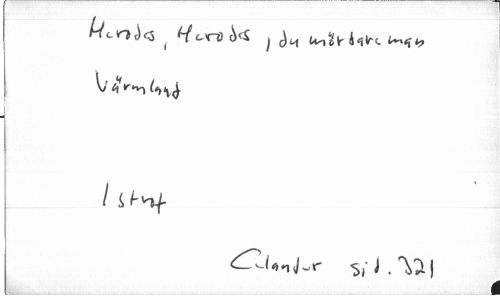 Herodes, Herodes, du mördare man
Värmland
1 strof
Celander sid. 321